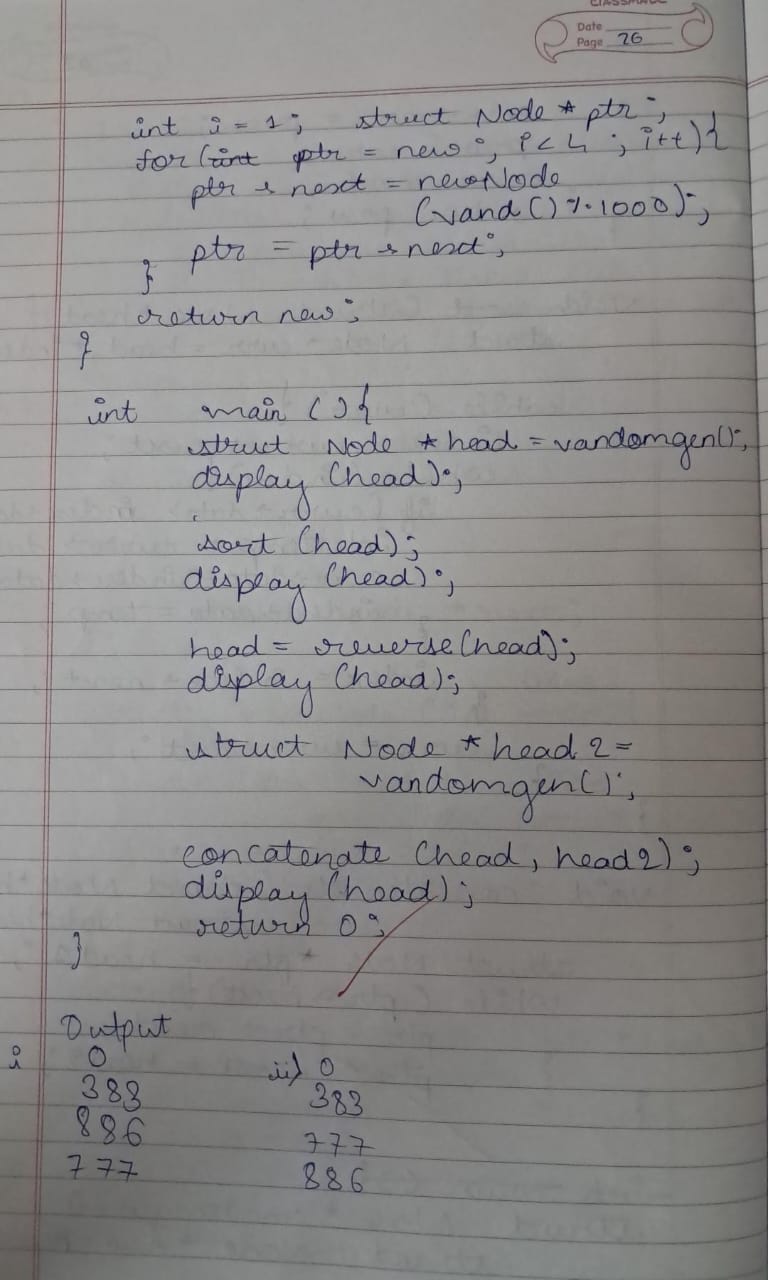 CLASSMATE
Date
Page 26
int i = 1; struct Node * ptr;
for (int ptr = new; i < 4; i++) {
ptr → next = newNode
(rand () % 1000);
ptr = ptr → next;
}
return new;
}
int main () {
struct Node * head = randomgen();
display (head);
sort (head);
display (head);
head = reverse (head);
display (head);
struct Node * head 2 =
randomgen();
concatenate (head, head2);
display (head);
return 0;
}
Output
i 0 ii) 0
383 383
886 777
777 886